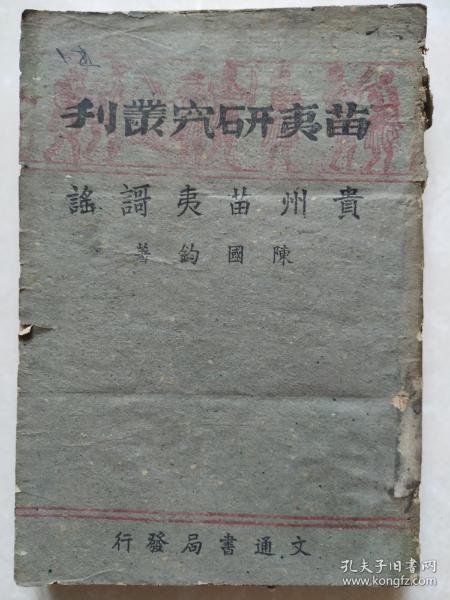 苗夷研究叢刊
貴州苗夷謌謠
陳國鈞著
文通書局發行
孔夫子旧书网
www.kongfz.com